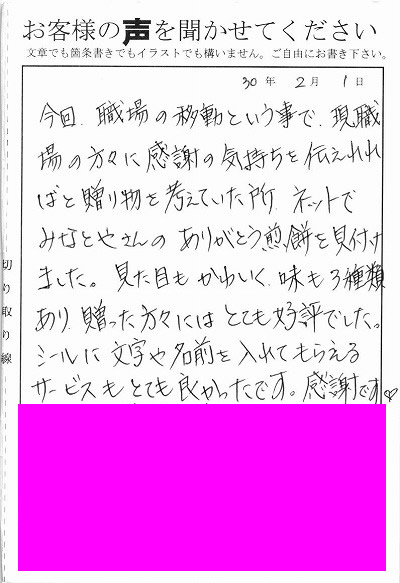 お客様の声を聞かせてください
文章でも箇条書きでもイラストでも構いません。ご自由にお書き下さい。
30年 2月 1日
今回、職場の移動という事で、現職
場の方々に感謝の気持ちを伝えれれ
ばと贈り物を考えていた所、ネットで
みなとやさんの ありがとう煎餅を見付け
ました。見た目も かわいく、味も3種類
あり、贈った方々には とても好評でした。
シールに 文字や名前を 入れて もらえる
サービスも とても良かったです。感謝です♡
切り取り線